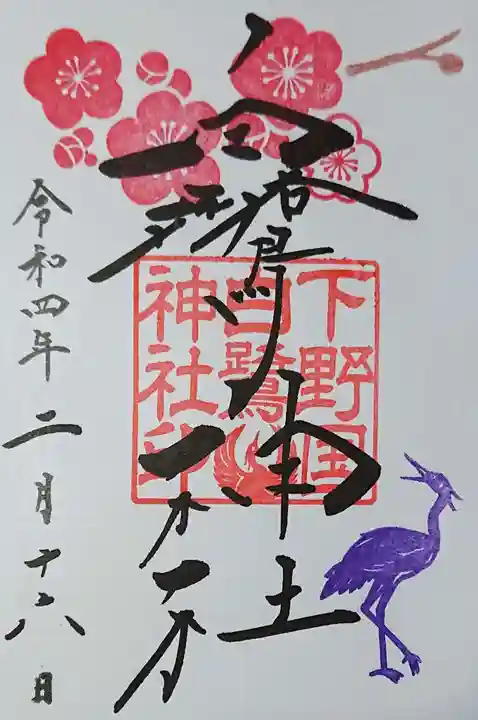 白鷺神社
下野国
白鷺
神社印
令和四年二月十六日